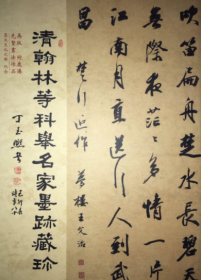 吹笛扁舟楚水長碧天
無際夜茫々多情一片
江南月直送行人到武
昌 楚行近作 夢樓王文治
清翰林等科舉名家墨跡藏珍